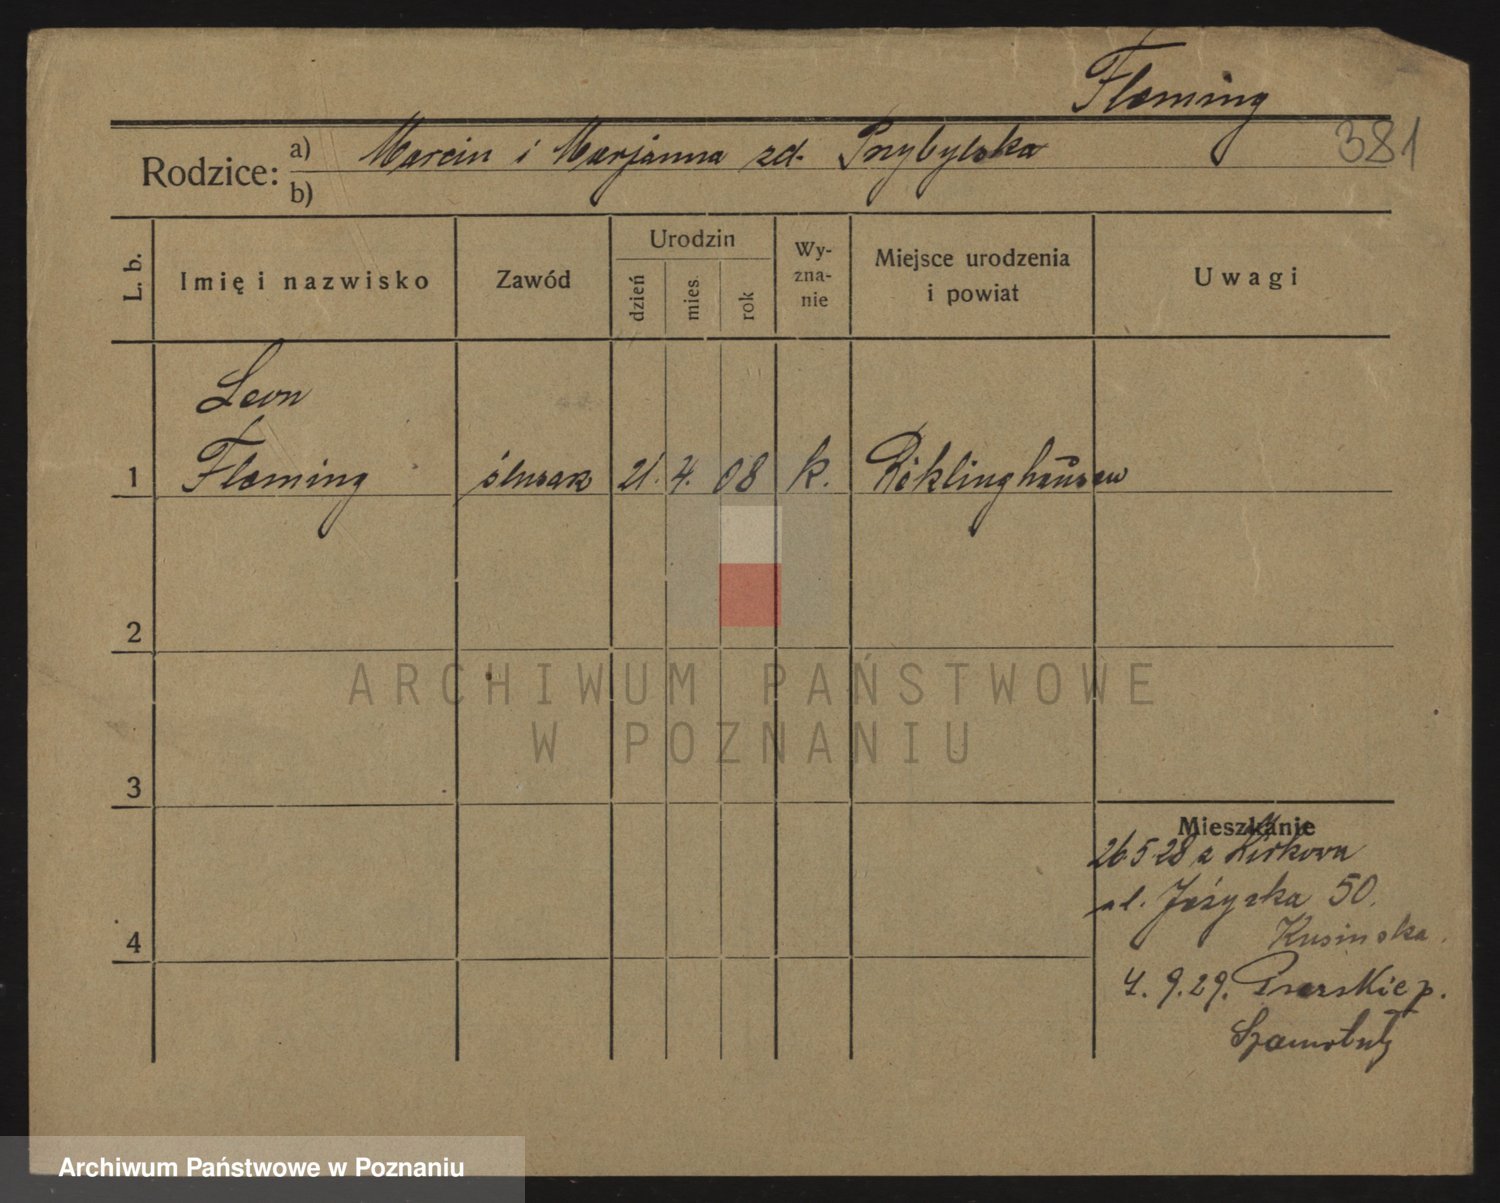 Fleming
381
Rodzice: a) Marcin i Marjanna zd. Przybylska
b)
L. b.
Imię i nazwisko
Zawód
Urodzin
dzień
mies.
rok
Wy-
zna-
nie
Miejsce urodzenia
i powiat
Uwagi
Leon
1 Fleming ślusarz 21. 4. 08 k. Reklinghausen
2
3
4
Mieszkanie
26 5 28 z
ul. Jeżycka 50.
4. 9. 29. Psarskie p.
Szamotuły
ARCHIWUM PAŃSTWOWE
W POZNANIU
Archiwum Państwowe w Poznaniu